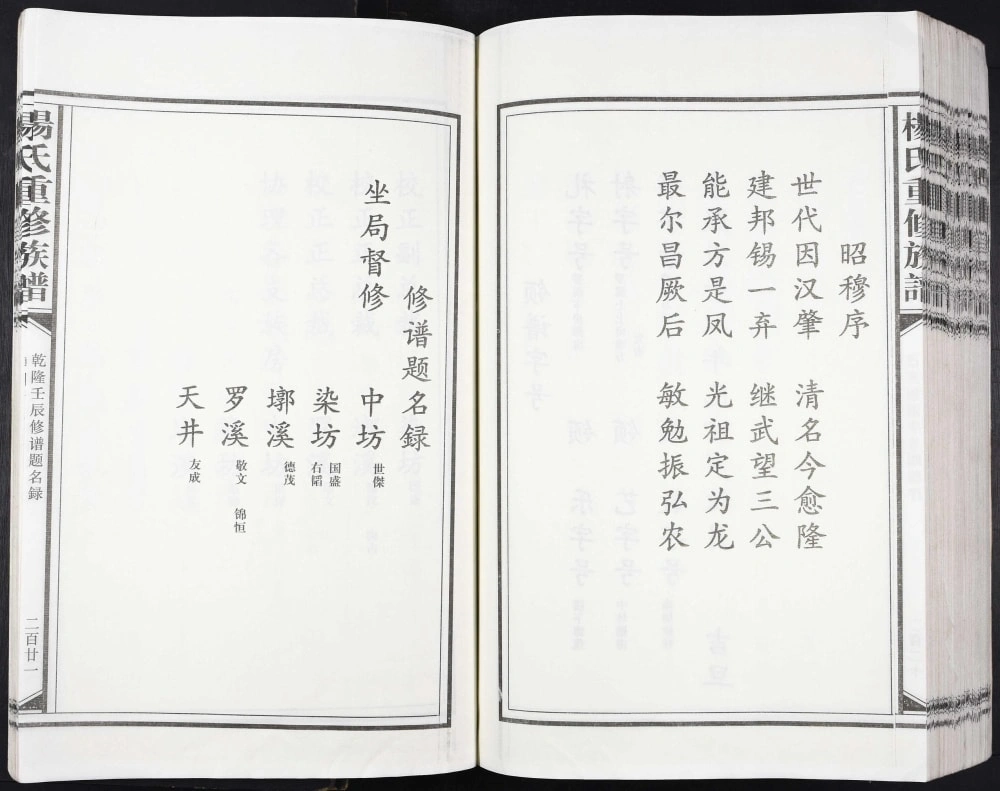 杨氏重修族谱
昭穆序
世代因汉肇 清名今愈隆
建邦锡一弃 继武望三公
能承方是凤 光祖定为龙
最尔昌厥后 敏勉振弘农
修谱题名録
坐局督修
中坊 世傑
染坊 国盛 右韬
墎溪 德茂
罗溪 敬文 锦恒
天井 友成
杨氏重修族谱
乾隆壬辰修谱题名録
二百廿一